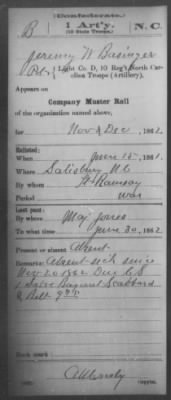 (Confederate.)
B 1 Art'y. N.C.
(10 State Troops.)
Jeremy W Basinger
Pvt, Light Co. D, 10 Reg't North Carolina Troops (Artillery),
Appears on
Company Muster Roll
of the organization named above,
for Nov & Dec, 1862.
Enlisted:
When June 15, 1861.
Where Salisbury N.C.
By whom Ramsay
Period War
Last paid:
By whom Maj Jones
To what time June 30, 1862.
Present or absent Absent
Remarks: Absent sick since
Nov 20 1862
Scabbard
& Belt
Book mark:
Copyist.